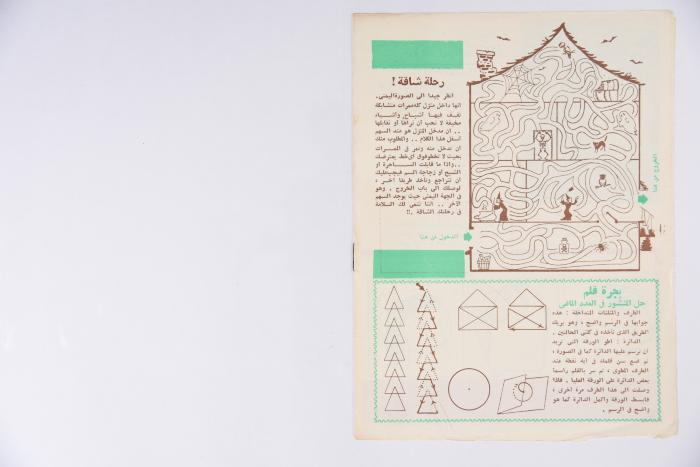 رحلة شاقة !
انظر جيدا الى الصورة اليمنى.
انها داخل منزل كله ممرات متشابكة
تقف فيها أشباح وأشياء
مخيفة لا نحب أن نراها أو نقابلها
.. ان مدخل المنزل هو عند السهم
أسفل هذا الكلام .. والمطلوب منك
أن تدخل منه وتمر فى الممرات
بحيث لا تخطو فوق أى خط يعترضك
.. واذا ما قابلت الساحرة أو
الشبح أو زجاجة السم فيجب عليك
أن تتراجع وتأخذ طريقا آخر ،
توصلك الى باب الخروج . وهو
فى الجهة اليمنى حيث يوجد السهم
الآخر .. اننا نتمنى لك السلامة
فى رحلتك الشاقة .!!
الدخول من هنا
الخروج من هنا
بجرة قلم
حل المنشور فى العدد الماضى
الظرف والمثلثات المتداخلة : هذه
جوابها فى الرسم واضح ، وهو يريك
الطريق الذى تأخذه فى كلتى الحالتين .
الدائرة : اطو الورقة التى تريد
أن ترسم عليها الدائرة كما فى الصورة ،
ثم ضع سن قلمك فى أية نقطة عند
الطرف المطوى ، ثم سر بالقلم راسما
بعض الدائرة على الورقة العليا . فاذا
وصلت الى هذا الطرف مرة أخرى ،
فابسط الورقة واكمل الدائرة كما هو
واضح فى الرسم .